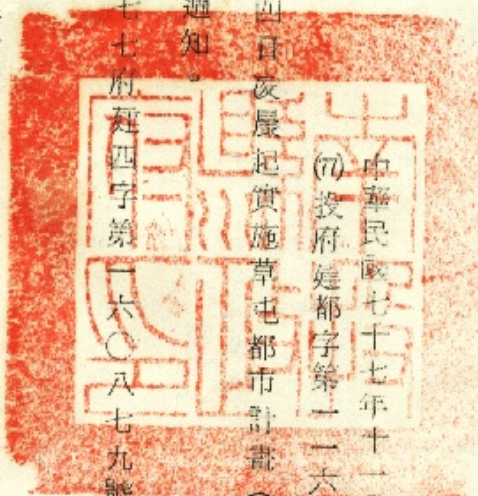 中華民國七十七年十一
(77)投府建都字第一一六
四日凌晨起實施草屯都市計畫(
週知。
七七府建四字第一六〇八七九號
南投縣政府印